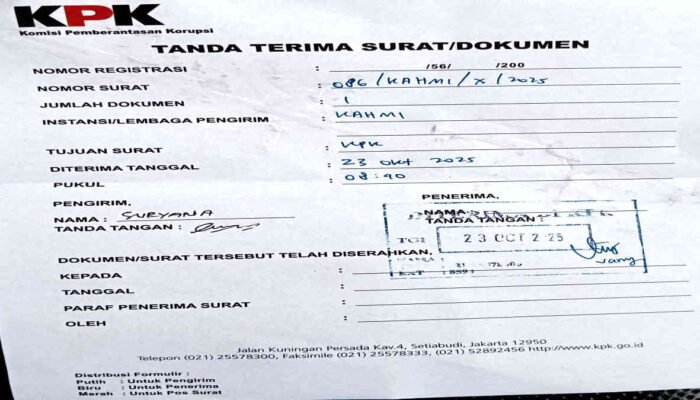 KPK
Komisi Pemberantasan Korupsi
TANDA TERIMA SURAT/DOKUMEN
NOMOR REGISTRASI : /56/ /200
NOMOR SURAT : 086/KAHMI/X/2025
JUMLAH DOKUMEN : 1
INSTANSI/LEMBAGA PENGIRIM : KAHMI
TUJUAN SURAT : KPK
DITERIMA TANGGAL : 23 Okt 2025
PUKUL : 08:40
PENGIRIM,
NAMA : SURYANA
TANDA TANGAN :
PENERIMA,
NAMA :
TANDA TANGAN :
TGL 23 OCT 2 25
DOKUMEN/SURAT TERSEBUT TELAH DISERAHKAN,
KEPADA :
TANGGAL :
PARAF PENERIMA SURAT :
OLEH :
Jalan Kuningan Persada Kav.4, Setiabudi, Jakarta 12950
Telepon (021) 25578300, Faksimile (021) 25578333, (021) 52892456 http://www.kpk.go.id
Distribusi Formulir :
Putih : Untuk Pengirim
Biru : Untuk Penerima
Merah : Untuk Pos Surat